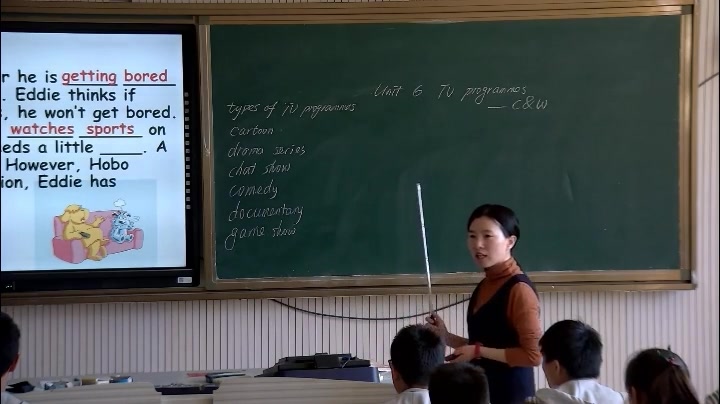 r he is getting bored
. Eddie thinks if
, he won't get bored.
watches sports on
eds a little _____. A
However, Hobo
ion, Eddie has
Unit 6 TV programmes
— C&W
types of TV programmes
cartoon
drama series
chat show
comedy
documentary
game show